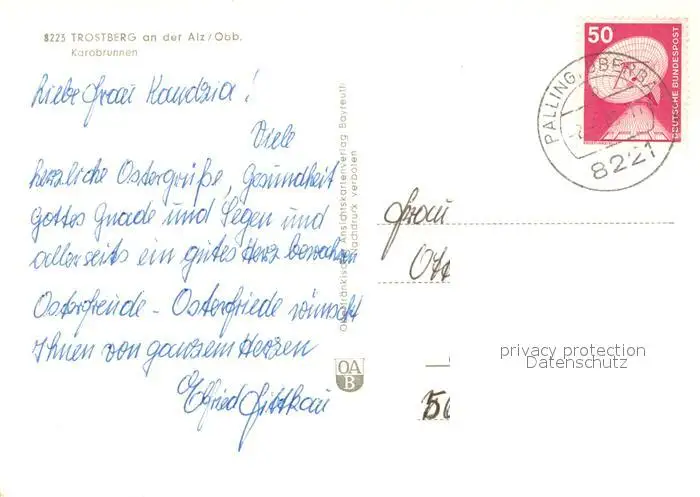 8223 TROSTBERG an der Alz/Obb.
Karobrunnen
Liebe Frau Kandzia!
Viele
herzliche Ostergrüße, Gesundheit
Gottes Gnade und Segen und
allerseits ein gutes Herz bewahren
Osterfreude - Osterfriede wünscht
Ihnen von ganzem Herzen
Elfried
Oberfränkischer Ansichtskartenverlag Bayreuth
Nachdruck verboten
OA
B
50
DEUTSCHE BUNDESPOST
PALLING, OBERB
8221
Frau
Ott
56
privacy protection
Datenschutz